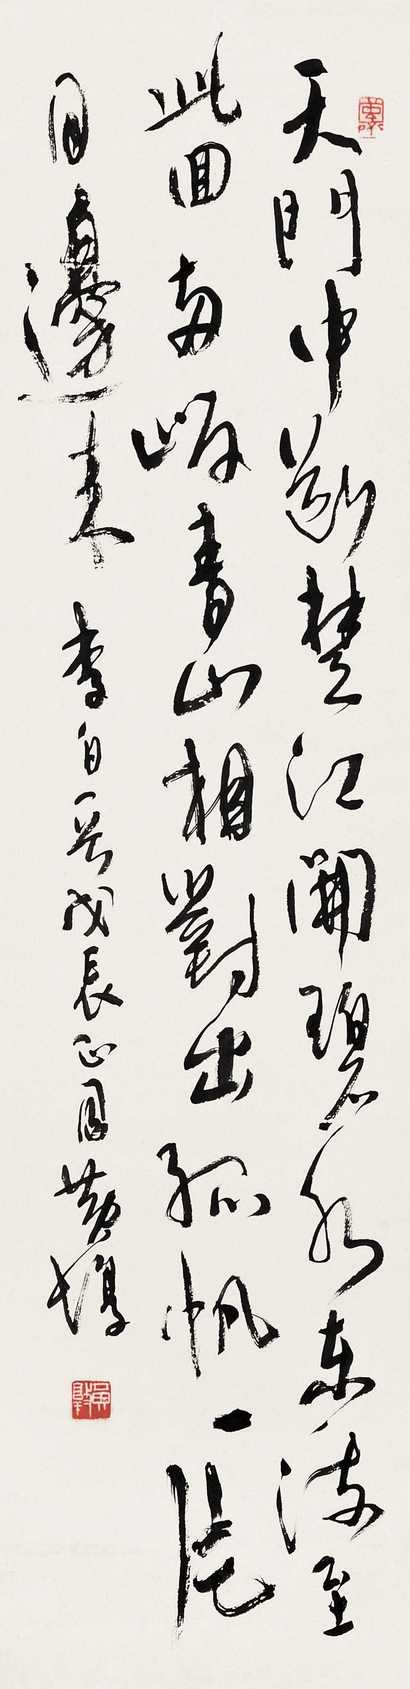 天門中斷楚江開碧水東流至
此回兩岸青山相對出孤帆一片
日邊來 李白 戊辰正月黃惇